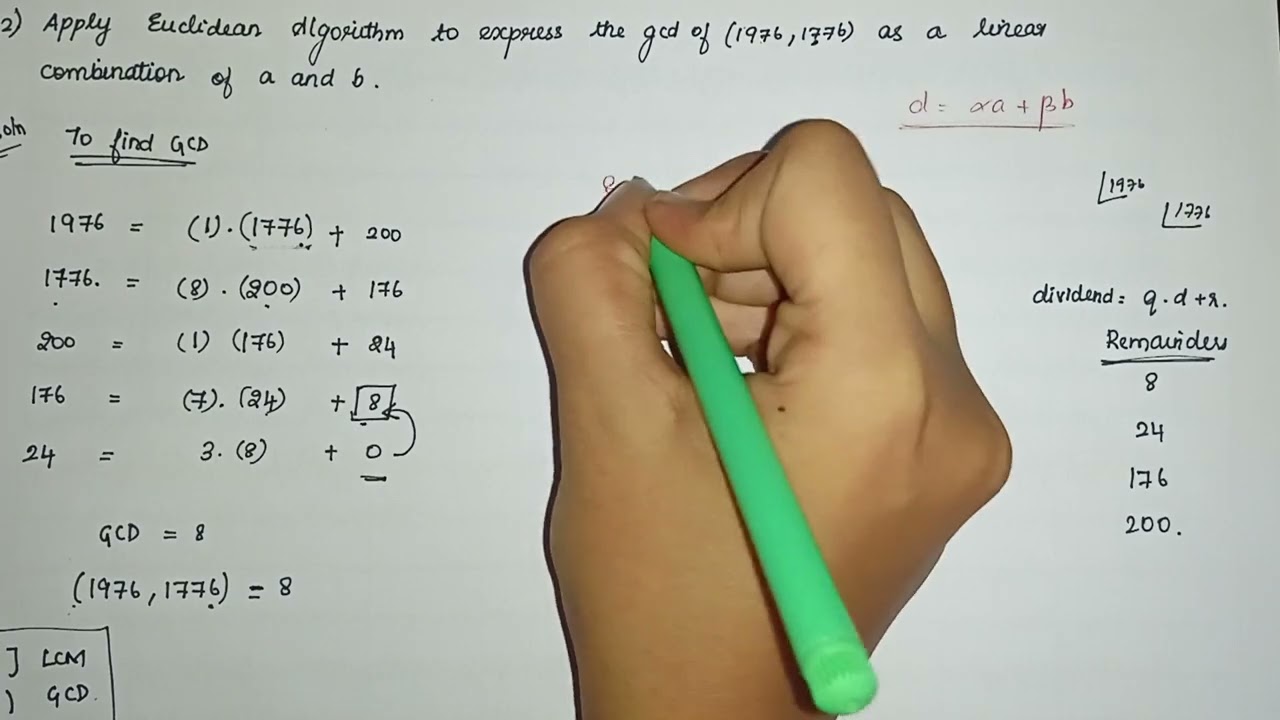 2) Apply Euclidean Algorithm to express the gcd of (1976, 1776) as a linear
combination of a and b.
d = αa + βb
soln
To find GCD
1976
1776
1976 = (1).(1776) + 200
1776. = (8).(200) + 176
200 = (1) (176) + 24
176 = (7).(24) + 8
24 = 3.(8) + 0
dividend = q.d+r.
Remainder
8
24
176
200.
GCD = 8
(1976, 1776) = 8
] LCM
) GCD.